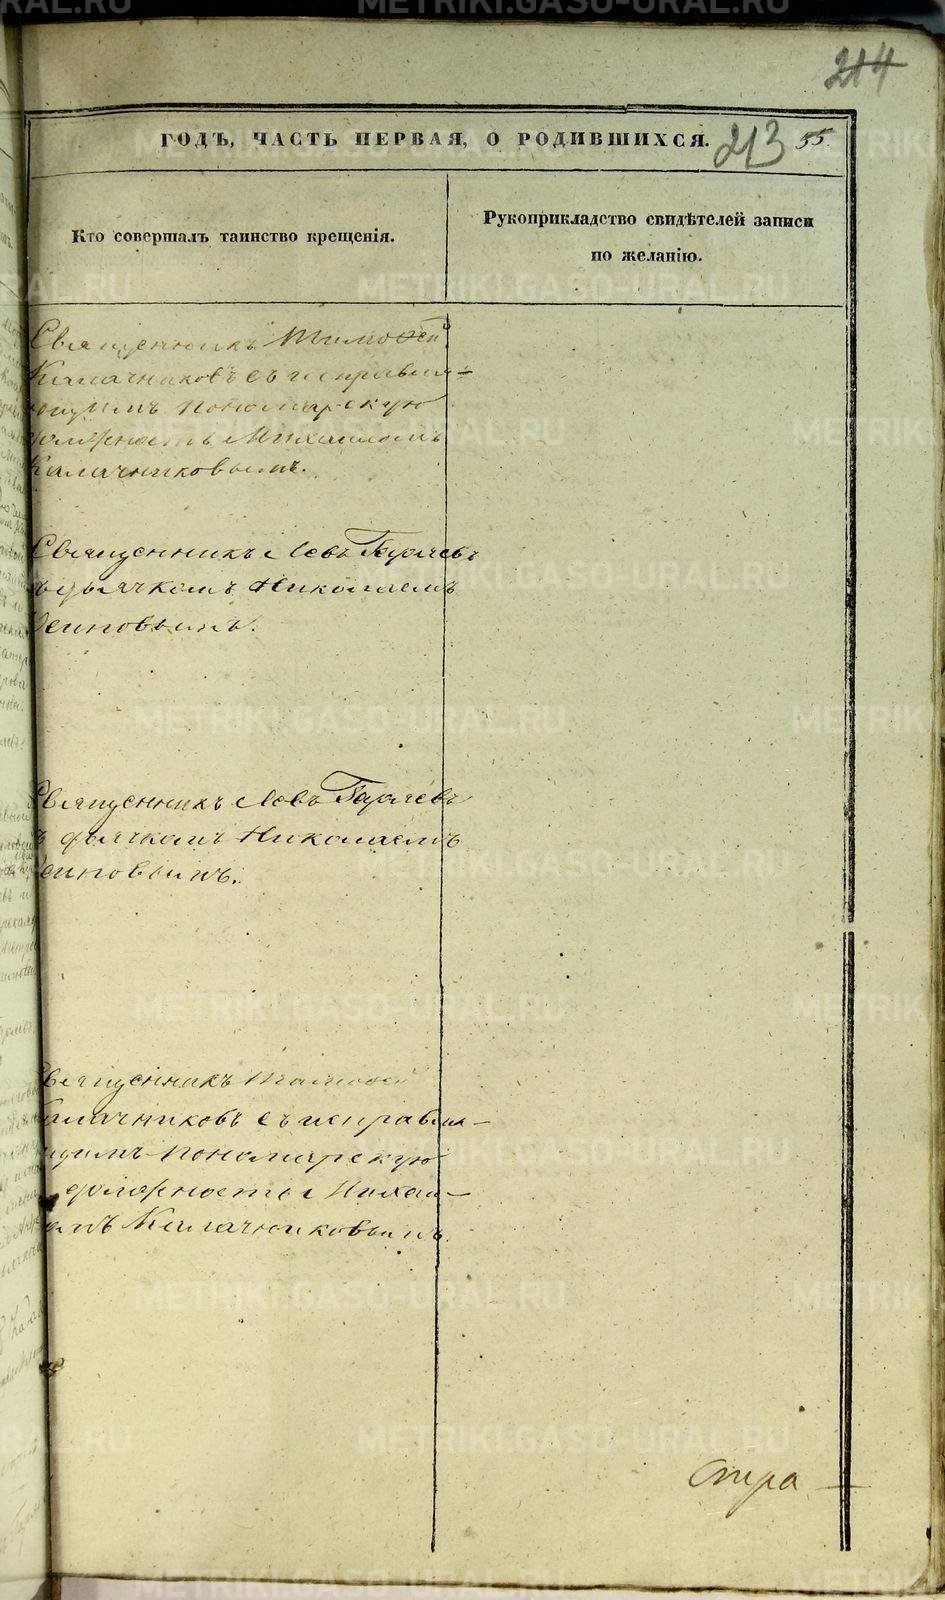 214
ГОДЪ, ЧАСТЬ ПЕРВАЯ, О РОДИВШИХСЯ. 213 55.
Кто совершалъ таинство крещенія.
Рукоприкладство свидѣтелей записи
по желанію.
Священникъ Тимоѳей
Калачниковъ съ исправля-
ющимъ пономарскую
должность Михаиломъ
Калачниковымъ.
Священникъ Левъ
дьячкомъ Николаемъ
Священникъ Левъ
дьячкомъ Николаемъ
Священникъ Тимоѳей
Калачниковъ съ исправля-
ющимъ пономарскую
должность Михаи-
ломъ Калачниковымъ.
Стра
METRIKI.GASO-URAL.RU